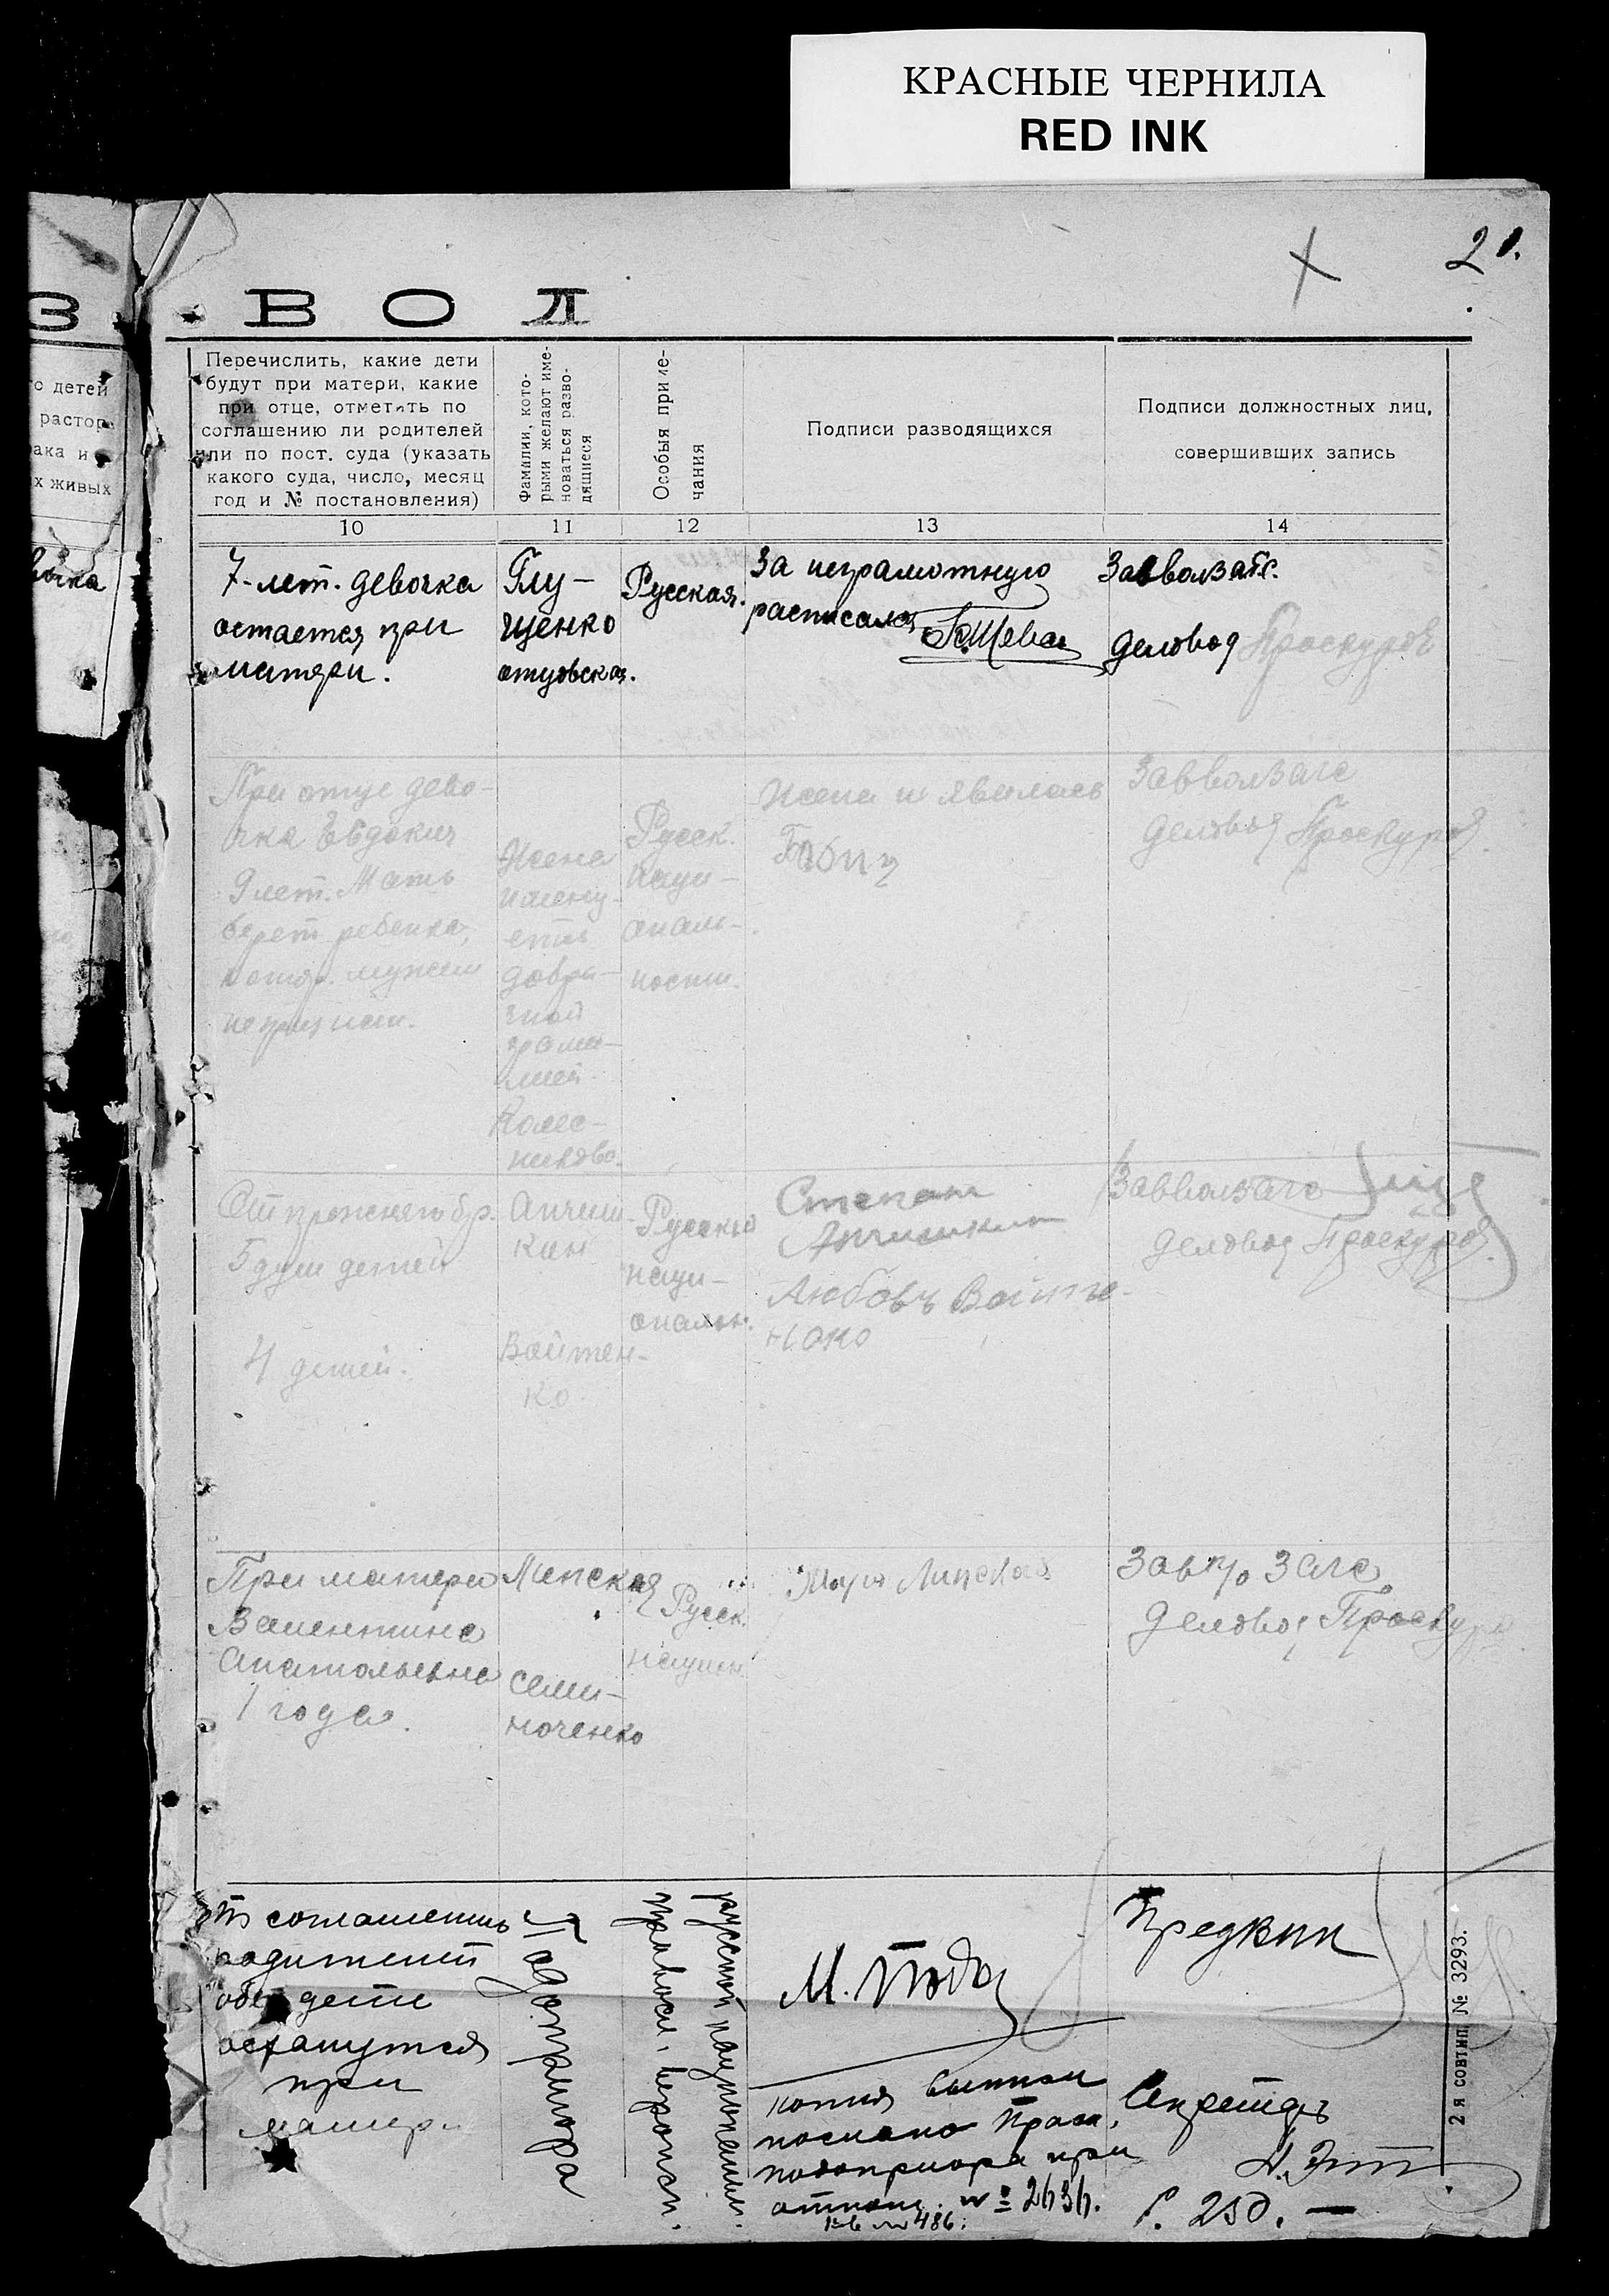 КРАСНЫЕ ЧЕРНИЛА
RED INK
21.
З
ВОЛ
о детей
растор
ака и
х живых
Перечислить, какие дети
будут при матери, какие
при отце, отметить по
соглашению ли родителей
или по пост. суда (указать
какого суда, число, месяц
год и № постановления)
Фамалии, кото-
рыми желают име-
новаться разво-
дящиеся
Особыя приме-
чания
Подписи разводящихся
Подписи должностных лиц,
совершивших запись
10 11 12 13 14
7-лет. девочка
остается при
матери.
Глу-
щенко
отцовская.
Русская.
За неграмотную
расписался
Завволзагс.
Деловод Проскуров
При отце дево-
чка Евдокия
9 лет. Мать
берет ребенка,
котор. мужем
не признан.
Жена
имену-
ется
добра-
чной
фами-
лией
Колес-
никова.
Русск.
наци-
ональ-
ности.
Жена не явилась
Завволзагс
Деловод Проскуров
От прежнего бр.
5 душ детей
4 детей.
Анчиш-
кин
Войтен-
ко
Русской
наци-
ональн.
Степан
Анчишкин
Любовь Войте-
нко
Завволзагс
Деловод Проскуров
При матери
Валентина
Анатольевна
1 года.
Липская
Семи-
ноченко
Русск.
национ
Липская
Завгорзагс
Деловод Проскуров
По соглашению
родителей
обе дети
останутся
при
матери
Подопригора
русской национальн.
правосл. вероисп.
М. Подо
копия выписи
послана Праск.
Подопригора при
отнош. № 2636.
486.
Предвик
Секретарь
р. 250. —
2 я совтип. № 3293.